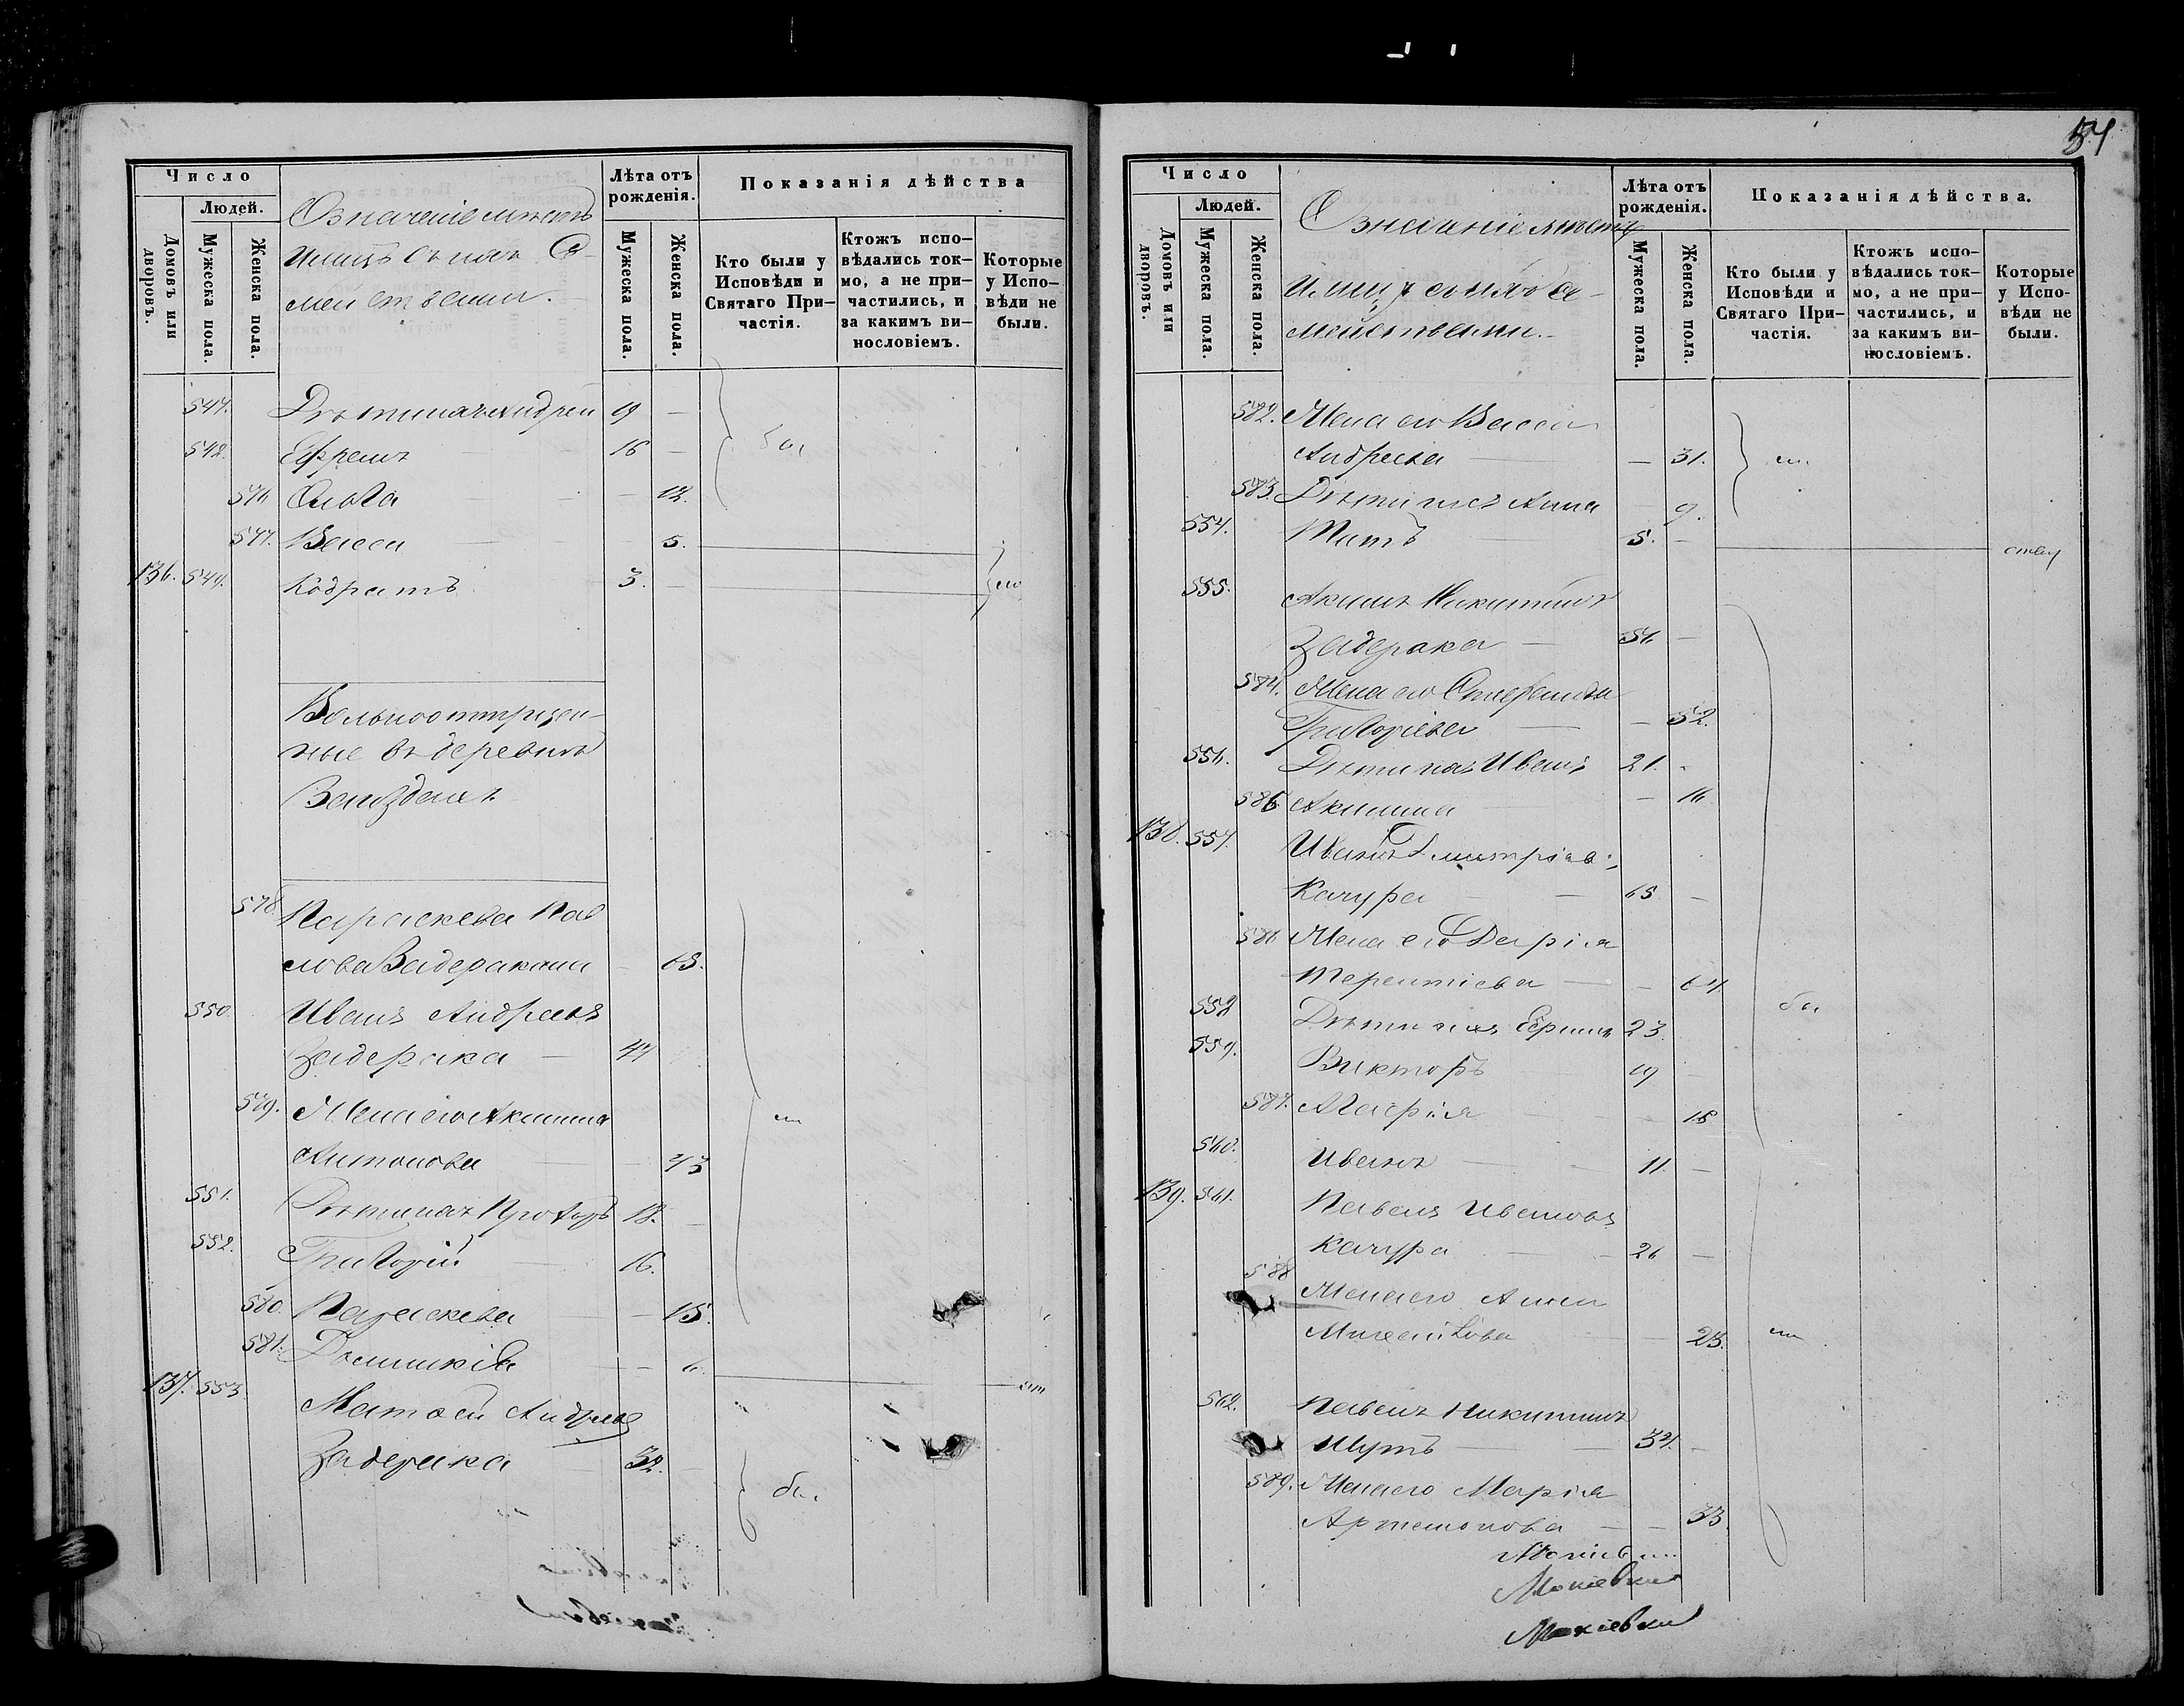 54
Число
Людей.
Домовъ или дворовъ.
Мужеска пола.
Женска пола.
Означеніе мѣстъ
и лицъ съ ихъ Се-
мействами.
Лѣта отъ рожденія.
Мужеска пола.
Женска пола.
Показанія дѣйства
Кто были у Исповѣди и Святаго При-частія.
Ктожъ испо-вѣдались ток-мо, а не при-частились, и за какимъ ви-нословіемъ.
Которые у Испо-вѣди не были.
547. Дѣти ихъ Андрей 19 —
548. Ефремъ 16 — бы
576 Ольга — 12.
577. Васса — 5.
136. 549. Кодратъ 3. —
Вольноотпущен-
ные въ деревнѣ
578 Параскева Пав
лова Задеракина — 63.
550. Иванъ Андреевъ
Задерака — 44
579. Жена его Акилина
Антонова 43
551. Дѣти ихъ Прохоръ 18. —
552. Григорій 16.
580. Параскева — 15.
581. Домникія — 6.
137. 553. Матѳей Андреевъ
Задерака 32. бы
Число
Людей.
Домовъ или дворовъ.
Мужеска пола.
Женска пола.
Означеніе мѣстъ
и лицъ съ ихъ Се-
мействами.
Лѣта отъ рожденія.
Мужеска пола.
Женска пола.
Показанія дѣйства.
Кто были у Исповѣди и Святаго При-частія.
Ктожъ испо-вѣдались ток-мо, а не при-частились, и за какимъ ви-нословіемъ.
Которые у Испо-вѣди не были.
582. Жена его Васса
Андреева — 31.
583. Дѣти ихъ Анна 9.
554. Титъ 5. —
555. Акимъ Никитинъ
Задерака — 51. —
584. Жена его Стефанида
Григоріева — 52.
556. Дѣти ихъ Иванъ 21. -
586 Акилина — 16
138. 557. Иванъ Дмитріевъ
Качура — 65 —
586 Жена его Дарія
Терентіева — 64
558 Дѣти ихъ Ефимъ 23. бы
559. Викторъ 19 —
587. Марія — 18
560. Иванъ — 11. —
139. 561. Павелъ Ивановъ
Качура — 26 —
588 Жена его Анна
Михайлова — 23.
562. Павелъ Никитинъ
Шутъ — 34. —
589. Жена его Марія
Артемонова — 33.